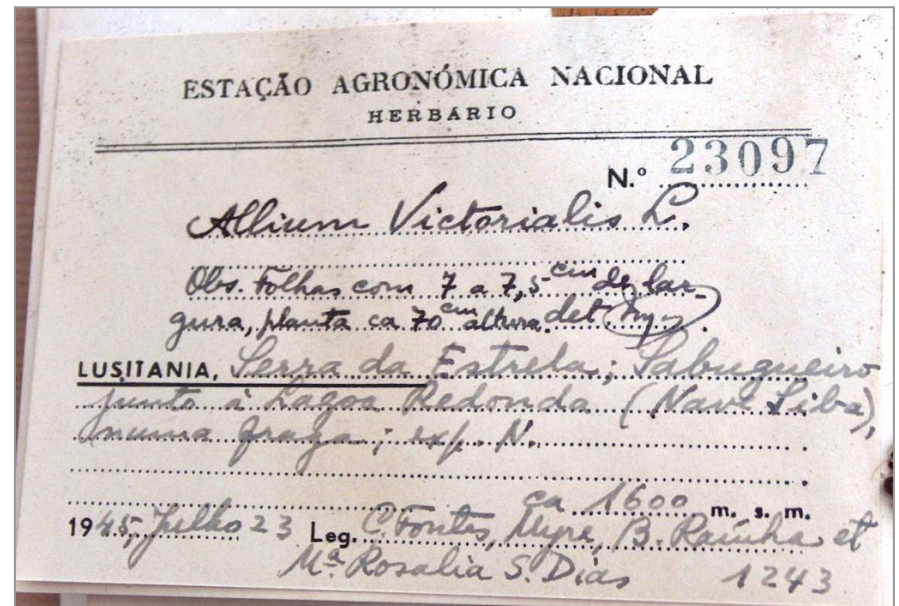 ESTAÇÃO AGRONÓMICA NACIONAL
HERBÁRIO
N.º 23097
Allium Victorialis L.
Obs. Folhas com 7 a 7,5 cm de lar-
gura, planta ca 70 cm altura. det
LUSITANIA, Serra da Estrela; Sabugueiro
junto à Lagoa Redonda (Nave Siba),
numa fraga; exp. N.
ca 1600 m. s. m.
1945, Julho 23 Leg. C. Fontes, Myre, B. Rainha et
Mª Rosalia S. Dias 1243